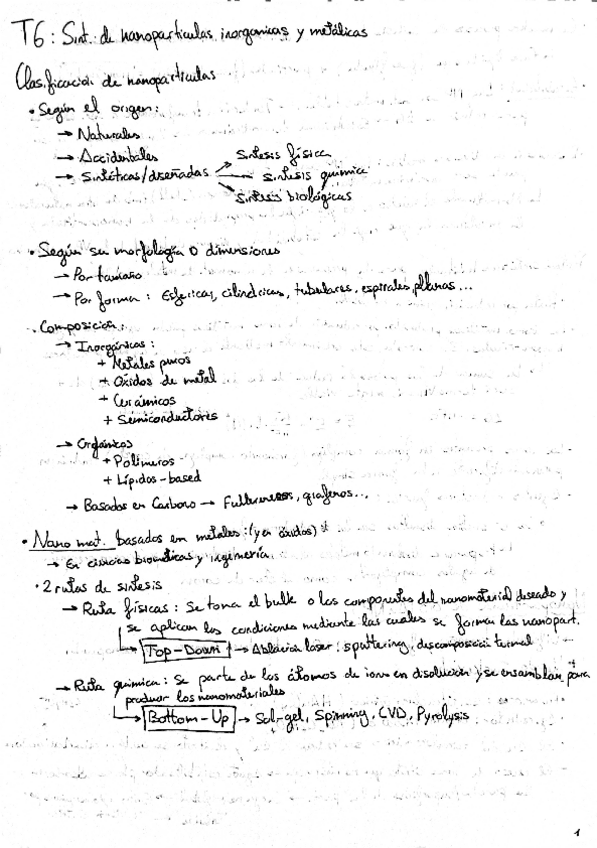 T6: Sint. de nanoparticulas inorganicas y metálicas
Clasificación de nanoparticulas
• Según el origen:
→ Naturales
→ Accidentales
→ Sintéticas/diseñadas → síntesis física
→ síntesis quimica
→ síntesis biológicas
• Según su morfología o dimensiones
→ Por tamaño
→ Por forma: Esfericas, cilindricas, tubulares, espirales, planas...
• Composición:
→ Inorgánicas:
+ Metales puros
+ Oxidos de metal
+ Cerámicos
+ Semiconductores
→ Orgánicos
+ Polimeros
+ Lípidos-based
→ Basados en Carbono → Fullerenos, grafenos...
• Nano mat. basados en metales: (y en óxidos) *
→ En ciencias biomédicas y ingeniería
• 2 rutas de sintesis
→ Ruta físicas: Se toma el bulk o los componentes del nanomaterial deseado y
se aplican las condiciones mediante las cuales se forman las nanopart.
→ Top-Down → Ablación laser, sputtering, descomposición termal
→ Ruta quimica: Se parte de los átomos de iones en disolución y se ensamblan para
producir los nanomateriales
→ Bottom-Up → Sol-gel, Spinning, CVD, Pyrolysis
1